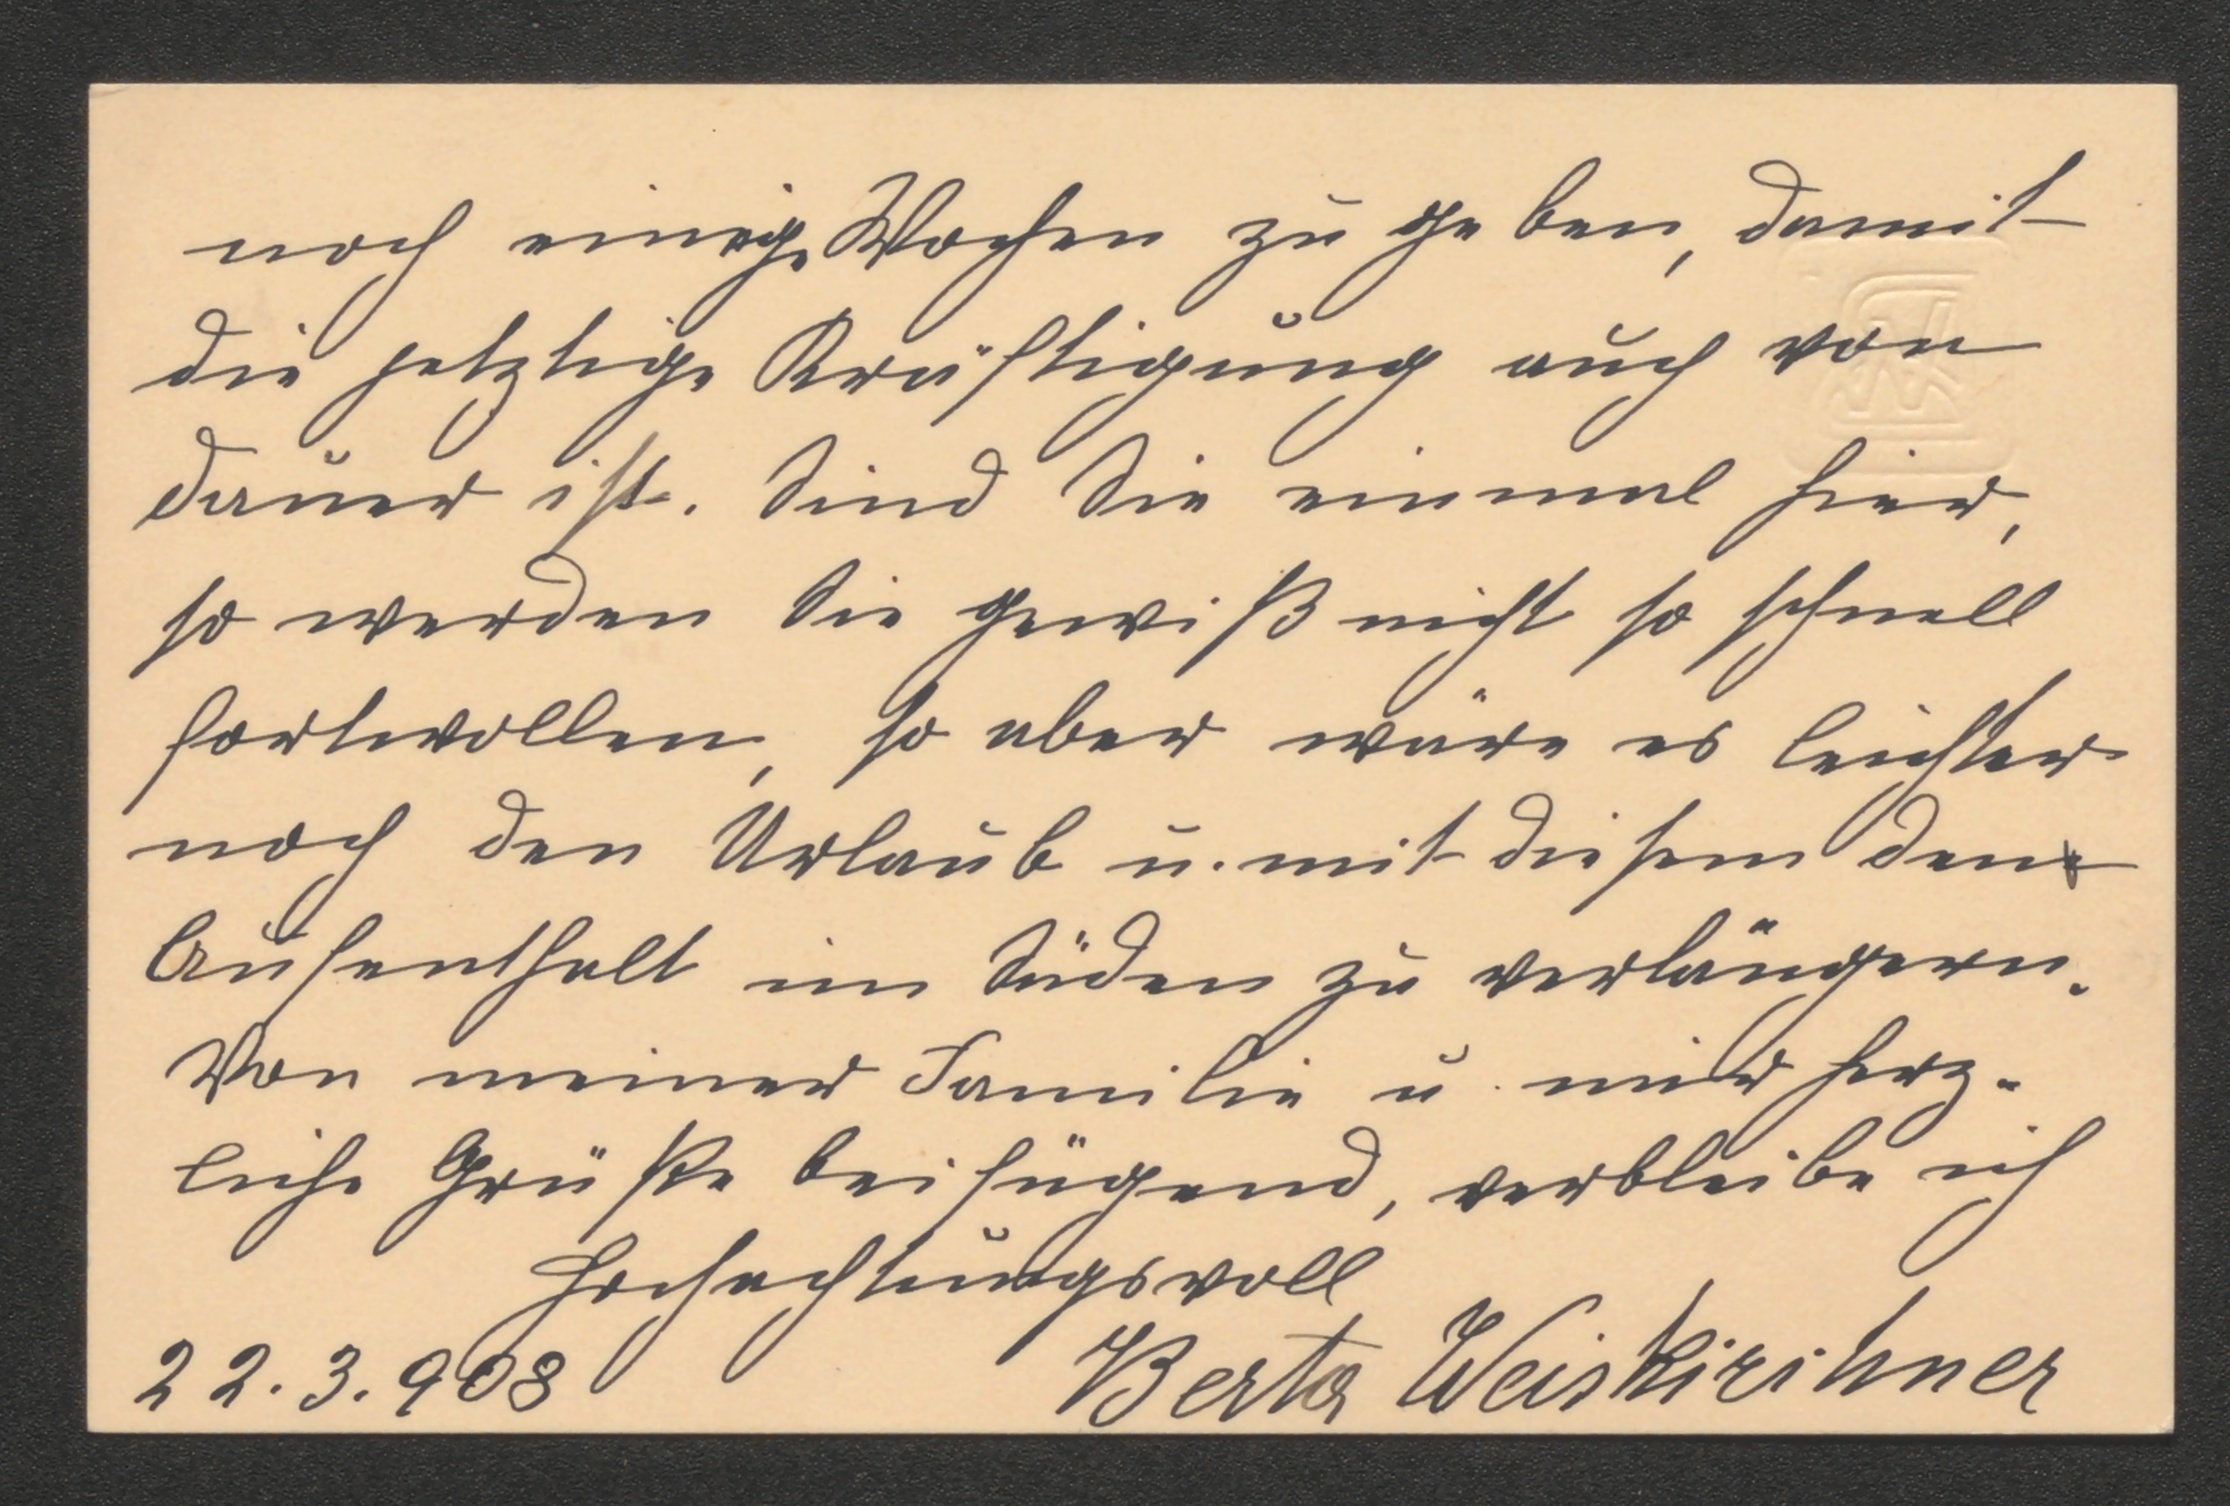 noch einige Wochen zu geben, damit
die jetztige Kräftigung auch von
dauer ist. Sind Sie einmal hier,
so werden Sie gewiß nicht so schnell
fortwollen, so aber wäre es leichter
noch den Urlaub u. mit diesem den
Aufenthalt im Süden zu verlängern.
Von meiner Familie u. mir herz-
liche Grüße beifügend, verbleibe ich
Hochachtungsvoll
22.3.908 Berta Weiskirchner